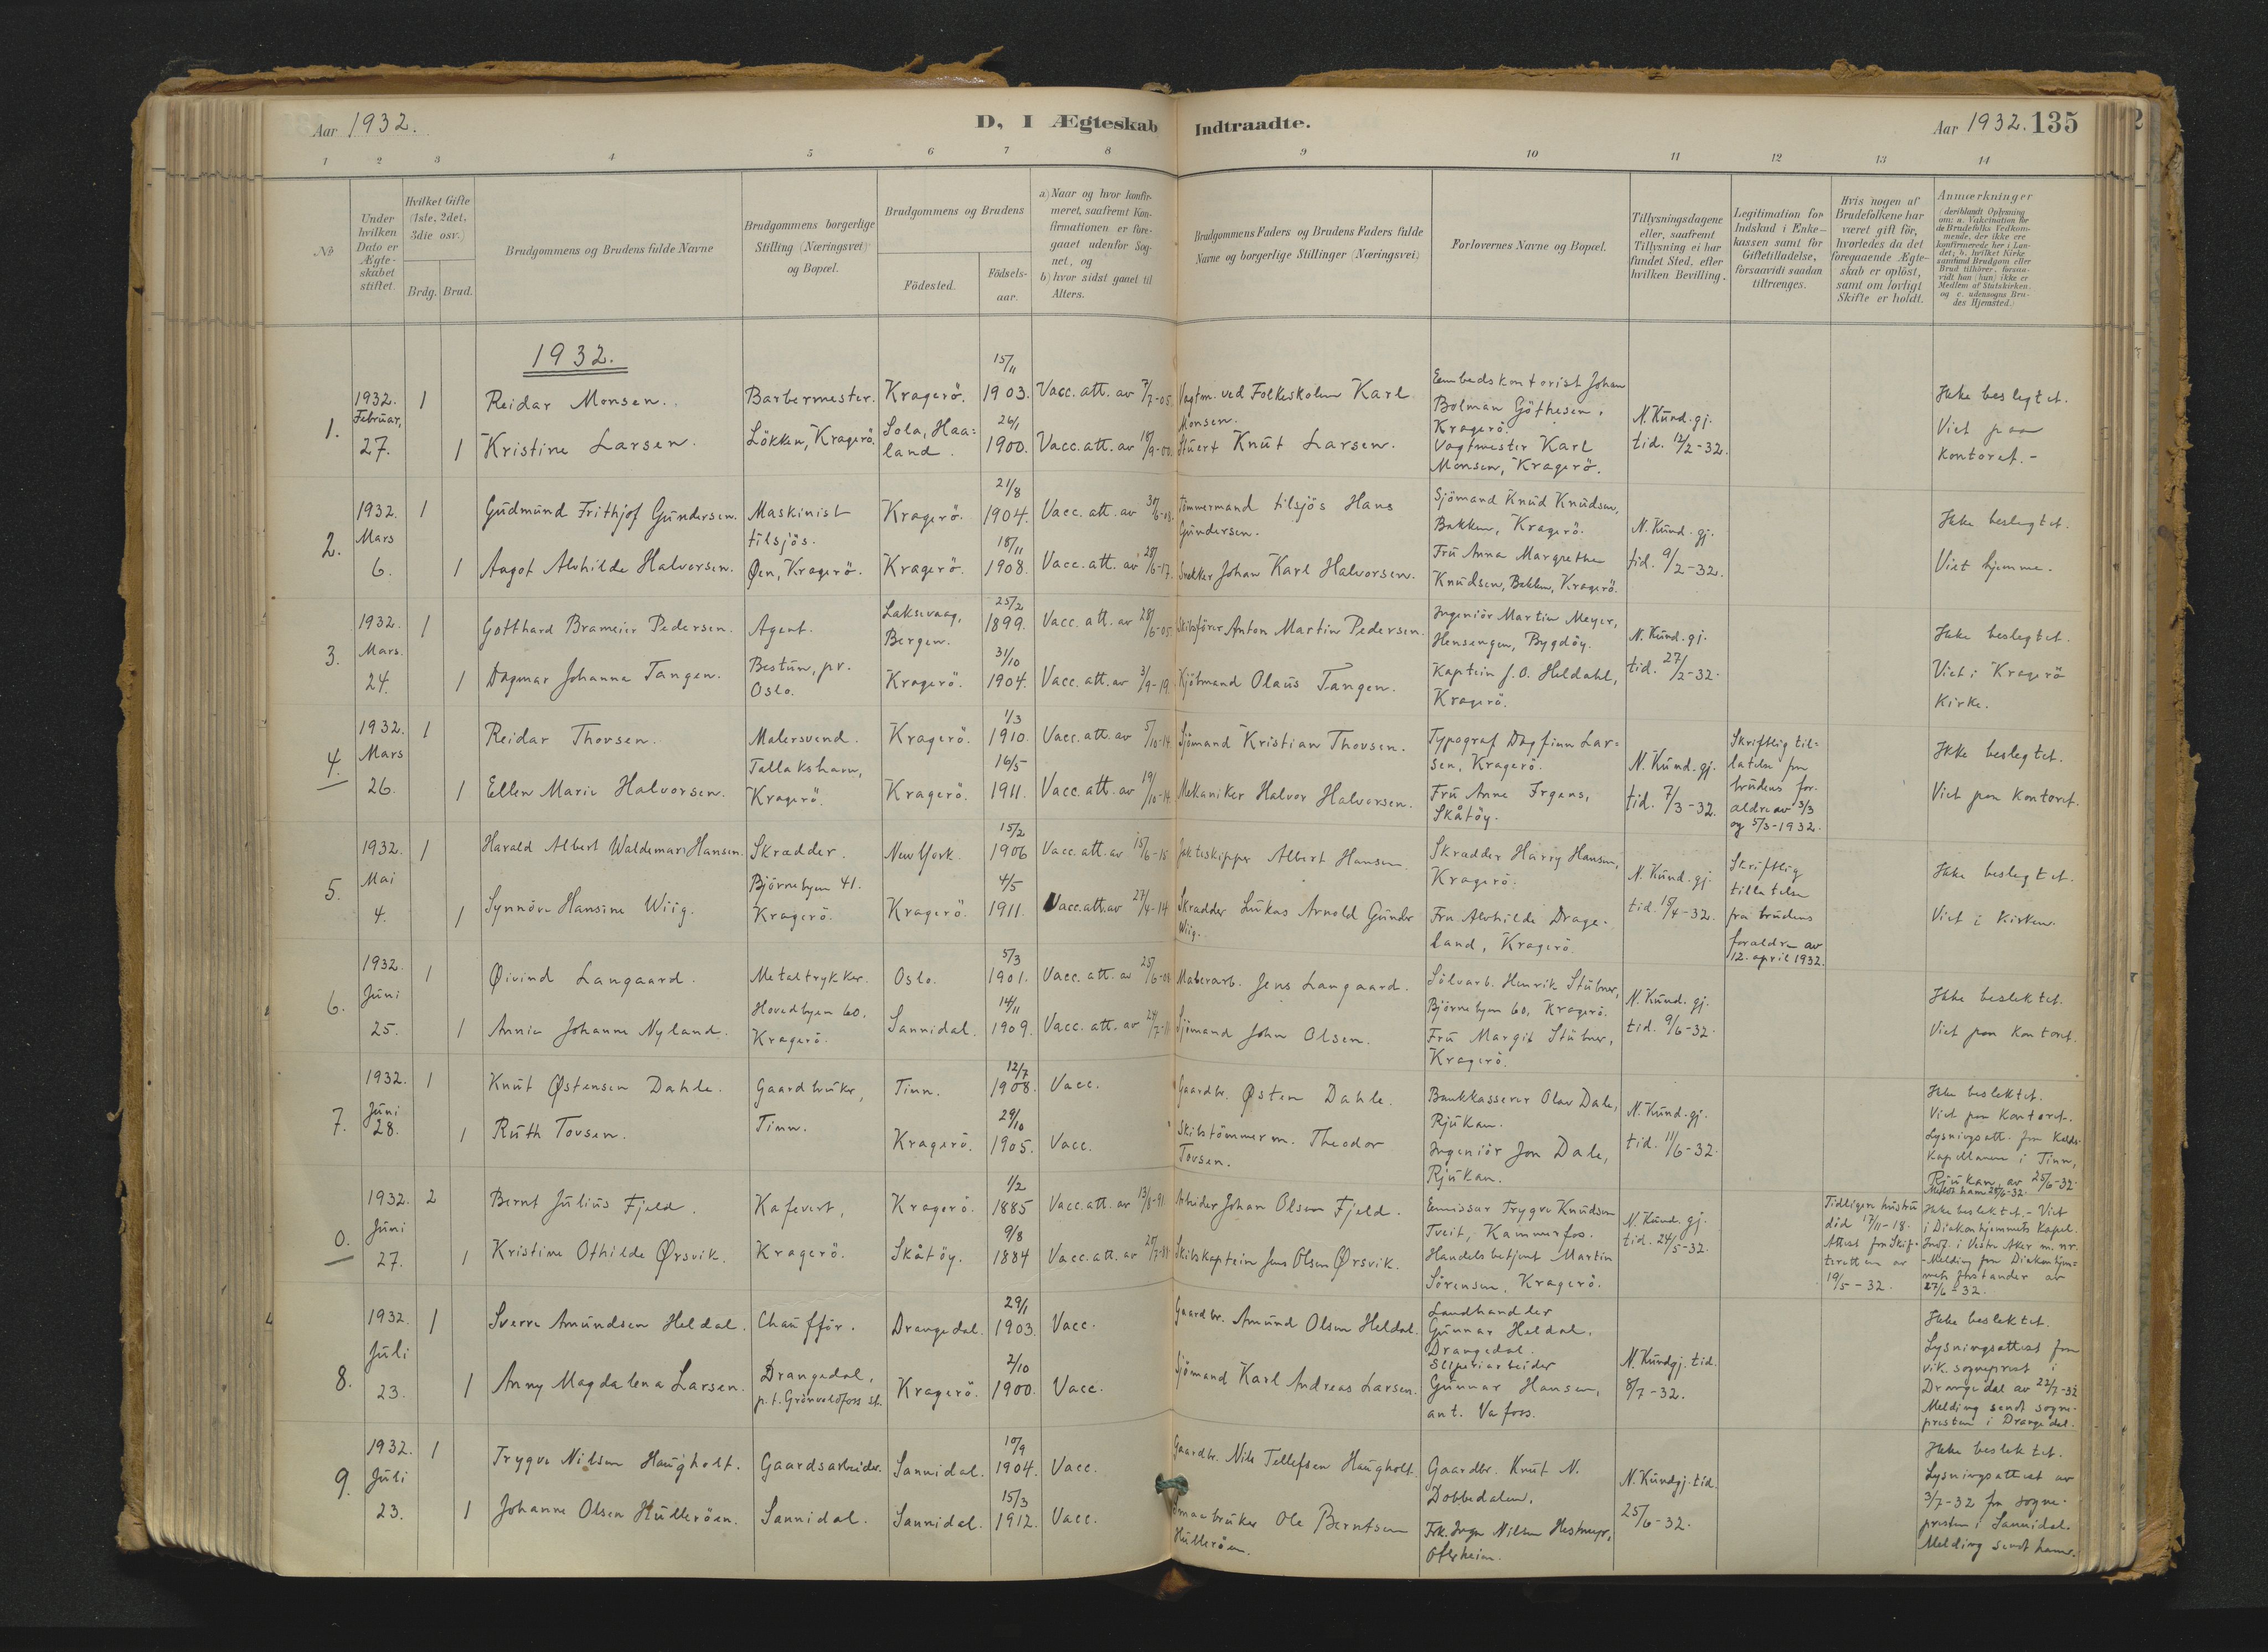 Aar 1932.
D, I Ægteskab
Indtraadte.
Aar 1932. 135
1 2 3 4 5 6 7 8 9 10 11 12 13 14
No
Under hvilken Dato er Ægteskabet stiftet.
Hvilket Gifte (1ste, 2det, 3die osv.)
Brdg. Brud.
Brudgommens og Brudens fulde Navne
Brudgommens borgerlige Stilling (Næringsvei) og Bopæl.
Brudgommens og Brudens
Födested.
Födsels-aar.
a) Naar og hvor konfirmeret, saafremt Konfirmationen er foregaaet udenfor Sognet, og
b) hvor sidst gaaet til Alters.
Brudgommens Faders og Brudens Faders fulde Navne og borgerlige Stillinger (Næringsvei)
Forlovernes Navne og Bopæl.
Tillysningsdagene eller, saafremt Tillysning ei har fundet Sted, efter hvilken Bevilling.
Legitimation for Indskud i Enkekassen samt for Giftetilladelse, forsaavidt saadan tiltrænges.
Hvis nogen af Brudefolkene har været gift för, hvorledes da det foregaaende Ægteskab er oplöst, samt om lovligt Skifte er holdt.
Anmærkninger (deriblandt Oplysning om: a. Vakcination for de Brudefolks Vedkommende, der ikke ere konfirmerede her i Landet; b. hvilket Kirkesamfund Brudgom eller Brud tilhörer, forsaavidt han (hun) ikke er Medlem af Statskirken, og c. udensogns Brudes Hjemsted.)
1932.
1.
1932. Februar, 27.
1
Reidar Monsen.
Barbermester.
Kragerö.
15/11 1903.
Vacc. att. av 7/7-05.
Vagtm. ved Folkeskolen Karl Monsen.
Embedskontorist Johan Bolman Göthesen, Kragerö.
N. Kund. gj. tid. 12/2-32.
Ikke beslegtet.
Viet paa
Kontoret.-
1
Kristine Larsen.
Lökken, Kragerö.
Sola, Haaland.
26/1 1900.
Vacc. att. av 18/9-00.
Stuert Knut Larsen.
Vagtmester Karl Monsen, Kragerö.
2.
1932. Mars 6.
1
Gudmund Frithjof Gundersen.
Maskinist tilsjös.
Kragerö.
21/8 1904.
Vacc. att. av 30/6-08.
Tömmermand tilsjös Hans Gundersen.
Sjömand Knud Knudsen, Bakken, Kragerö.
N. Kund. gj. tid. 9/2-32.
Ikke beslegtet.
Viet hjemme.
1
Aagot Alvhilde Halvorsen.
Øen, Kragerö.
Kragerö.
18/11 1908.
Vacc. att. av 28/6-17.
Snekker Johan Karl Halvorsen.
Fru Anna Margrethe Knudsen, Bakken, Kragerö.
3.
1932. Mars. 24.
1
Gotthard Brameier Pedersen.
Agent.
Laksevaag, Bergen.
25/2 1899.
Vacc. att. av 28/6-05.
Skibsförer Anton Martin Pedersen.
Ingeniör Martin Meyer, Hensengen, Bygdöy.
N. Kund. gj. tid. 27/2-32.
Ikke beslegtet.
Viet i Kragerö
Kirke.
1
Dagmar Johanna Tangen.
Bestun, pr. Oslo.
Kragerö.
31/10 1904.
Vacc. att. av 3/9-19.
Kjöbmand Olaüs Tangen.
Kaptein J. O. Heldahl, Kragerö.
4.
1932. Mars 26.
1
Reidar Thorsen.
Malersvend.
Kragerö.
1/3 1910.
Vacc. att. av 5/10-14.
Sjömand Kristian Thorsen.
Typograf Dagfinn Larsen, Kragerö.
N. Kund. gj. tid. 7/3-32.
Skriftlig tillatelse fra brudens foraldre av 3/3 og 5/3-1932.
Ikke beslegtet.
Viet paa Kontoret.
1
Ellen Marie Halvorsen.
Tallakshavn, Kragerö.
Kragerö.
16/5 1911.
Vacc. att. av 19/10-14.
Mekaniker Halvor Halvorsen.
Fru Anne Irgens, Skåtöy.
5.
1932. Mai 4.
1
Harald Albert Waldemar Hansen.
Skrædder.
New York.
15/2 1906
Vacc. att. av 15/6-15
Jakteskipper Albert Hansen
Skrædder Harry Hansen, Kragerö.
N. Kund. gj. tid. 18/4-32.
Skriftlig tillatelse fra brudens foraldre av 12. april 1932.
Ikke beslegtet.
Viet i Kirken.
1
Synnöve Hansine Wiig.
Björnebyen 41. Kragerö.
Kragerö.
4/5 1911.
Vacc. att. av 27/4-14
Skradder Lukas Arnold Gunder Wiig.
Fru Alvhilde Drageland, Kragerö
6.
1932. Juni 25.
1
Øivind Langaard.
Metaltrykker.
Oslo.
5/3 1901.
Vacc. att. av 25/6-08.
Malerarb. Jens Langaard.
Sölvarb. Henrik Stübner, Björnebyen 60, Kragerö.
N. Kund. gj. tid. 9/6-32.
Ikke beslektet.
Viet paa Kontoret.
1
Annie Johanne Nyland.
Hovedbyen 60, Kragerö.
Sannidal.
14/11 1909.
Vacc. att. av 24/7-11
Sjömand John Olsen.
Fru Margit Stübner, Kragerö.
7.
1932. Juni 28.
1
Knut Østensen Dahle.
Gaardbruker, Tinn.
Tinn.
12/7 1908.
Vacc.
Gaardbr. Østen Dahle.
Bankkasserer Olav Dale, Rjukan.
N. Kund. gj. tid. 11/6-32.
Ikke beslektet.
Viet paa Kontoret.
Lysningsatt. fra Kapellanen i Tinn,
Rjukan, av 25/6-32.
1
Ruth Tovsen.
Kragerö.
29/10 1905.
Vacc.
Skibstömmerm. Theodor Tovsen.
Ingeniör Jon Dale, Rjukan.
0.
1932. Juni 27.
2
Bernt Julius Fjeld.
Kafevert,
Kragerö.
1/2 1885
Vacc. att. av 13/8-91.
Arbeider Johan Olsen Fjeld.
Emissær Trygve Knudsen Tveit, Kammerfos.
N. Kund. gj. tid. 24/5-32.
Tidligere hustru död 17/11-18. Attest fra Skifteretten av 19/5-32.
Ikke beslektet.- Viet
i Diakonhjemmets Kapel.
Indf. i Vestre Aker m. nr.
- Melding fra Diakonhjemmets forstander av
27/6-32.
1
Kristine Othilde Ørsvik.
Kragerö.
Skåtöy.
9/8 1884
Vacc. att. av
Skibskaptein Jens Olsen Ørsvik.
Handelsbetjent Martin Sörensen, Kragerö.
8.
1932. Juli 23.
1
Sverre Amundsen Heldal.
Chaufför.
Drangedal.
29/1 1903.
Vacc.
Gaardbr. Amund Olsen Heldal.
Landhandler Gunnar Heldal, Drangedal.
N. Kundgj. tid. 8/7-32.
Ikke beslektet.
Lysningsattest fra
vik. sogneprest i
Drangedal av 22/7-32
Melding sendt sogne-
presten i Drangedal.
1
Anny Magdalena Larsen.
Drangedal, p.t. Grönvoldfoss st.
Kragerö.
2/10 1900.
Vacc.
Sjömand Karl Andreas Larsen.
Sliperiarbeider Gunnar Hansen, ant. Vafoss.
9.
1932. Juli 23.
1
Trygve Nilsen Haugholt.
Gaardsarbeider.
Sannidal.
10/9 1904.
Vacc.
Gaardbr. Nils Tellefsen Haugholt.
Gaardbr. Knut N. Dobbedalen.
N. Kundgj. tid. 25/6-32.
Ikke beslektet.
Lysningsattest av
3/7-32 fra sogne-
presten i Sannidal.
Melding sendt ham.
1
Johanne Olsen Hulleröen.
Sannidal.
Sannidal.
15/3 1912.
Vacc.
Smaabruker Ole Berntsen Hulleröen.
Frk. Inga Nilsen